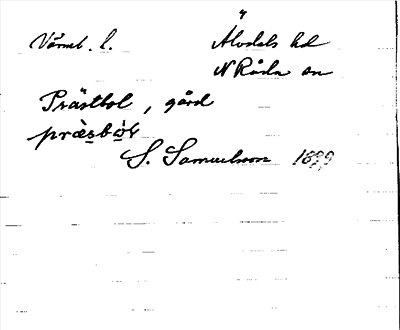 Värml. l. Älvdals hd
N Råda sn
Prästbol, gård
præ̀sbo̤l
S. Samuelsson 1899